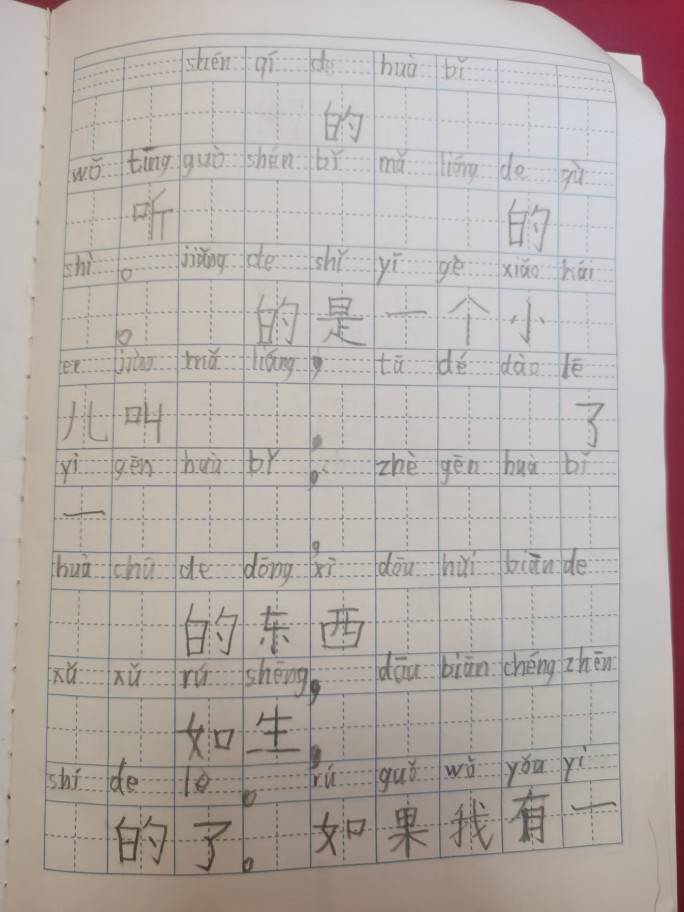 shén qí de huà bǐ
的
wǒ tīng guò shén bǐ mǎ liáng de gù
听 的
shì 。 jiǎng de shǐ yī gè xiǎo hái
。 的 是 一 个 小
er jiào mǎ liáng , tā dé dào lē
儿 叫 , 了
yì gēn huà bǐ , zhè gēn huà bǐ
一 ,
huà chū de dōng xī dōu huì biàn de
的 东 西
xǔ xǔ rú shēng , dōu biàn chéng zhēn
如 生 ,
shí de le 。 rú guǒ wǒ yǒu yì
的 了 。 如 果 我 有 一